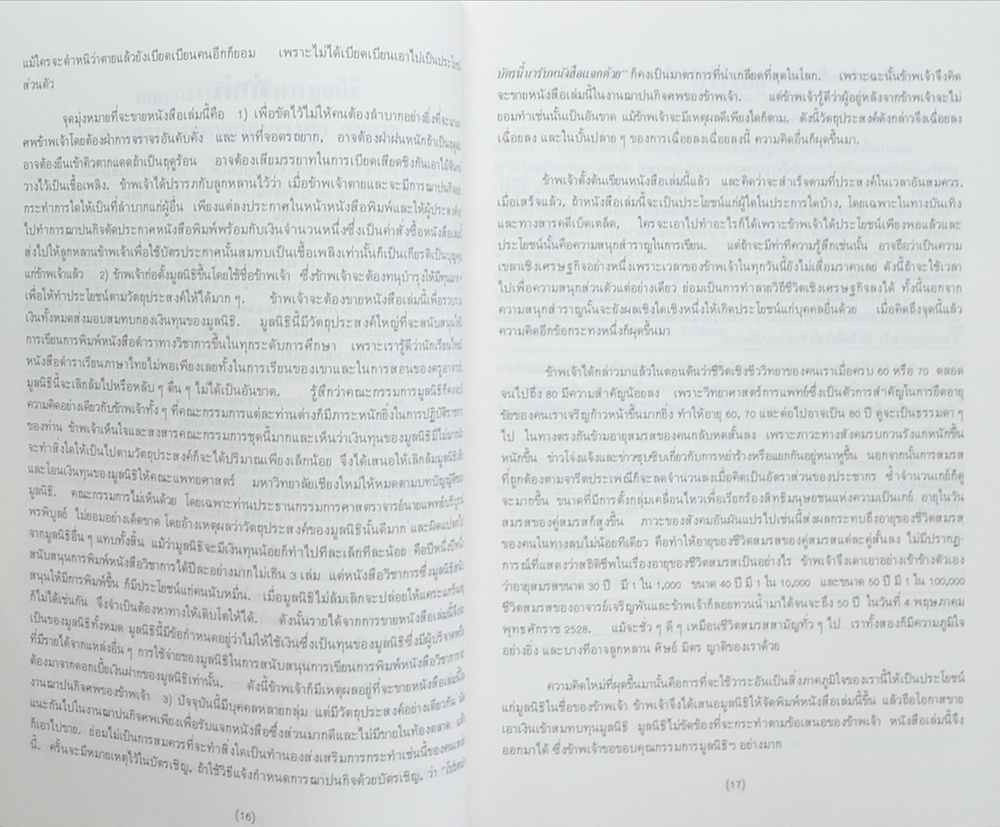 แม้ใครจะตำหนิว่าตายแล้วยังเบียดเบียนคนอีกก็ยอม เพราะไม่ได้เบียดเบียนเอาไปเป็นประโยชน์
ส่วนตัว
จุดมุ่งหมายที่จะขายหนังสือเล่มนี้คือ 1) เพื่อขัดไว้ไม่ให้คนต้องลำบากอย่างยิ่งที่จะมาเผา
ศพข้าพเจ้าโดยต้องฝ่าการจราจรอันคับคั่ง และ หาที่จอดรถยาก, อาจต้องฝ่าฝนหนักถ้าเป็นฤดูฝน
อาจต้องยืนเข้าคิวตากแดดถ้าเป็นฤดูร้อน อาจต้องเสียมรรยาทในการเบียดเสียดชิงกันเอาไม้จันทน์
วางไว้เป็นเชื้อเพลิง. ข้าพเจ้าได้ปรารภกับลูกหลานไว้ว่า เมื่อข้าพเจ้าตายและจะมีการฌาปนกิจอย่า
กระทำการใดให้เป็นที่ลำบากแก่ผู้อื่น เพียงแต่ลงประกาศในหน้าหนังสือพิมพ์และให้ผู้ประสงค์จะ
ไปทำการฌาปนกิจตัดประกาศหนังสือพิมพ์พร้อมกับเงินจำนวนหนึ่งซึ่งเป็นค่าสั่งซื้อหนังสือเล่มนี้
ส่งไปให้ลูกหลานข้าพเจ้าเพื่อใช้บัตรประกาศนั้นสมทบเป็นเชื้อเพลิงเท่านั้นก็เป็นเกียรติเป็นบุญคุณ
แก่ข้าพเจ้าแล้ว 2) ข้าพเจ้าก่อตั้งมูลนิธิขึ้นโดยใช้ชื่อข้าพเจ้า ซึ่งข้าพเจ้าจะต้องทนุบำรุงให้มีทุนมาก
เพื่อให้ทำประโยชน์ตามวัตถุประสงค์ให้ได้มาก ๆ. ข้าพเจ้าจะต้องขายหนังสือเล่มนี้เพื่อรวบรวม
เงินทั้งหมดส่งมอบสมทบกองเงินทุนของมูลนิธิ. มูลนิธินี้มีวัตถุประสงค์ใหญ่ที่จะสนับสนุนให้มี
การเขียนการพิมพ์หนังสือตำราทางวิชาการขึ้นในทุกระดับการศึกษา เพราะเรารู้ดีว่านักเรียนไทยมี
หนังสือตำราเรียนภาษาไทยไม่พอเพียงเลยทั้งในการเรียนของเขาและในการสอนของครูอาจารย์
มูลนิธินี้จะเลิกล้มไปหรือหลับ ๆ ตื่น ๆ ไม่ได้เป็นอันขาด. รู้สึกว่าคณะกรรมการมูลนิธิก็คงมี
ความคิดอย่างเดียวกับข้าพเจ้าทั้ง ๆ ที่คณะกรรมการแต่ละท่านต่างก็มีภาระหนักยิ่งในการปฏิบัติราชการ
ของท่าน ข้าพเจ้าเห็นใจและสงสารคณะกรรมการชุดนี้มากและเห็นว่าเงินทุนของมูลนิธิมีไม่มากนัก
จะทำสิ่งใดให้เป็นไปตามวัตถุประสงค์ก็จะได้ปริมาณเพียงเล็กน้อย จึงได้เสนอให้เลิกล้มมูลนิธิเสีย
และโอนเงินทุนของมูลนิธิให้คณะแพทยศาสตร์ มหาวิทยาลัยเชียงใหม่ให้หมดตามบทบัญญัติของ
มูลนิธิ. คณะกรรมการไม่เห็นด้วย โดยเฉพาะท่านประธานกรรมการศาสตราจารย์นายแพทย์บริบูรณ์
พรพิบูลย์ ไม่ยอมอย่างเด็ดขาด โดยอ้างเหตุผลว่าวัตถุประสงค์ของมูลนิธินั้นดีมาก และผิดแปลกไป
จากมูลนิธิอื่น ๆ แทบทั้งสิ้น แม้ว่ามูลนิธิจะมีเงินทุนน้อยก็ทำไปทีละเล็กทีละน้อย คือปีหนึ่งปีหนึ่ง
สนับสนุนการพิมพ์หนังสือวิชาการได้ปีละอย่างมากไม่เกิน 3 เล่ม แต่หนังสือวิชาการซึ่งมูลนิธิสนับ
สนุนให้มีการพิมพ์ขึ้น ก็มีประโยชน์แก่คนนับหมื่น. เมื่อมูลนิธิไม่ล้มเลิกจะปล่อยให้แคระแกร็นก็
ก็ไม่ได้เช่นกัน จึงจำเป็นต้องหาทางให้เติบโตให้ได้. ดังนั้นรายได้จากการขายหนังสือเล่มนี้จึงจะ
เป็นของมูลนิธิทั้งหมด มูลนิธินี้มีข้อกำหนดอยู่ว่าไม่ให้ใช้เงินซึ่งเป็นทุนของมูลนิธิซึ่งมีผู้บริจาคหรือ
ที่มีรายได้จากแหล่งอื่น ๆ การใช้จ่ายของมูลนิธิในการสนับสนุนการเขียนการพิมพ์หนังสือวิชาการจะ
ต้องมาจากดอกเบี้ยเงินฝากของมูลนิธิเท่านั้น. ดังนี้ข้าพเจ้าก็มีเหตุผลอยู่ที่จะขายหนังสือเล่มนี้ใน
งานฌาปนกิจศพของข้าพเจ้า 3) ปัจจุบันนี้มีบุคคลหลายกลุ่ม แต่มีวัตถุประสงค์อย่างเดียวกัน
แนะกันไปในงานฌาปนกิจศพเพียงเพื่อรับแจกหนังสือซึ่งส่วนมากดีและไม่มีขายในท้องตลาด แล้ว
ก็เอาไปขาย. ย่อมไม่เป็นการสมควรที่จะทำสิ่งใดเป็นทำนองส่งเสริมการกระทำเช่นนี้ของคนเหล่า
นี้. ครั้นจะมีหมายเหตุไว้ในบัตรเชิญ, ถ้าใช้วิธีแจ้งกำหนดการฌาปนกิจด้วยบัตรเชิญ, ว่า "โปรดนำ
(16)
บัตรนี้มารับหนังสือแจกด้วย" ก็คงเป็นมาตรการที่น่าเกลียดที่สุดในโลก. เพราะฉะนั้นข้าพเจ้าจึงคิด
จะขายหนังสือเล่มนี้ในงานฌาปนกิจศพของข้าพเจ้า. แต่ข้าพเจ้ารู้ดีว่าผู้อยู่หลังจากข้าพเจ้าจะไม่
ยอมทำเช่นนั้นเป็นอันขาด แม้ข้าพเจ้าจะมีเหตุผลดีเพียงใดก็ตาม. ดังนี้วัตถุประสงค์ดังกล่าวจึงเฉื่อยลง
เฉื่อยลง และในนั้นปลาย ๆ ของการเฉื่อยลงเฉื่อยลงนี้ ความคิดอื่นก็ผุดขึ้นมา.
ข้าพเจ้าตั้งต้นเขียนหนังสือเล่มนี้แล้ว และคิดว่าจะสำเร็จตามที่ประสงค์ในเวลาอันสมควร.
เมื่อเสร็จแล้ว, ถ้าหนังสือเล่มนี้จะเป็นประโยชน์แก่ผู้ใดในประการใดบ้าง, โดยเฉพาะในทางบันเทิง
และทางสารคดีเบ็ดเตล็ด, ใครจะเอาไปทำอะไรก็ได้เพราะข้าพเจ้าได้ประโยชน์เพียงพอแล้วและ
ประโยชน์นั้นคือความสนุกสำราญในการเขียน. แต่ถ้าจะมีท่าทีความรู้สึกเช่นนั้น อาจถือว่าเป็นความ
เขลาเชิงเศรษฐกิจอย่างหนึ่งเพราะเวลาของข้าพเจ้าในทุกวันนี้ยังไม่เสื่อมราคาเลย ดังนี้ถ้าจะใช้เวลา
ไปเพื่อความสนุกส่วนตัวแต่อย่างเดียว ย่อมเป็นการทำลายวิถีชีวิตเชิงเศรษฐกิจลงได้ ทั้งนี้นอกจาก
ความสนุกสำราญนั้นจะยังผลเชิงใดเชิงหนึ่งให้เกิดประโยชน์แก่บุคคลอื่นด้วย เมื่อคิดถึงจุดนี้แล้ว
ความคิดอีกข้อกระทงหนึ่งก็ผุดขึ้นมา
ข้าพเจ้าได้กล่าวมาแล้วในตอนต้นว่าชีวิตเชิงชีววิทยาของคนเราเมื่อครบ 60 หรือ 70 ตลอด
จนไปถึง 80 มีความสำคัญน้อยลง เพราะวิทยาศาสตร์การแพทย์ซึ่งเป็นตัวการสำคัญในการยืดอายุ
ขัยของคนเราเจริญก้าวหน้าขึ้นมากยิ่ง ทำให้อายุ 60, 70 และต่อไปอาจเป็น 80 ปี ดูจะเป็นธรรมดา ๆ
ไป ในทางตรงกันข้ามอายุสมรสของคนกลับหดสั้นลง เพราะภาวะทางสังคมรบกวนรังแกหนักขึ้น
หนักขึ้น ข่าวโจ่งแจ้งและข่าวซุบซิบเกี่ยวกับการหย่าร้างหรือแยกกันอยู่หนาหูขึ้น นอกจากนั้นการสมรส
ที่ถูกต้องตามจารีตประเพณีก็จะลดจำนวนลงเมื่อคิดเป็นอัตราส่วนของประชากร ซ้ำจำนวนเกย์ก็ดู
จะมากขึ้น ขนาดที่มีการตั้งกลุ่มเคลื่อนไหวเพื่อเรียกร้องสิทธิมนุษยชนแห่งความเป็นเกย์ อายุในวัน
สมรสของคู่สมรสก็สูงขึ้น ภาวะของสังคมอันผันแปรไปเช่นนี้ส่งผลกระทบถึงอายุของชีวิตสมรส
ของคนในทางลบไม่น้อยทีเดียว คือทำให้อายุของชีวิตสมรสของคู่สมรสแต่ละคู่สั้นลง ไม่มีปรากฏ-
การณ์ที่แสดงว่าสถิติชีพในเรื่องอายุของชีวิตสมรสเป็นอย่างไร ข้าพเจ้าจึงเดาเอาอย่างเข้าข้างตัวเอง
ว่าอายุสมรสขนาด 30 ปี มี 1 ใน 1,000 ขนาด 40 ปี มี 1 ใน 10,000 และขนาด 50 ปี มี 1 ใน 100,000
ชีวิตสมรสของอาจารย์เจริญพันและข้าพเจ้าก็ลอยทวนน้ำมาได้จนจะถึง 50 ปี ในวันที่ 4 พฤษภาคม
พุทธศักราช 2528. แม้จะชั่ว ๆ ดี ๆ เหมือนชีวิตสมรสสามัญทั่ว ๆ ไป เราทั้งสองก็มีความภูมิใจ
อย่างยิ่ง และบางทีอาจลูกหลาน ศิษย์ มิตร ญาติของเราด้วย
ความคิดใหม่ที่ผุดขึ้นมานั้นคือการที่จะใช้วาระอันเป็นสิ่งภาคภูมิใจของเรานี้ให้เป็นประโยชน์
แก่มูลนิธิในชื่อของข้าพเจ้า ข้าพเจ้าจึงได้เสนอมูลนิธิให้จัดพิมพ์หนังสือเล่มนี้ขึ้น แล้วถือโอกาสขาย
เอาเงินเข้าสมทบทุนมูลนิธิ มูลนิธิไม่ขัดข้องที่จะกระทำตามข้อเสนอของข้าพเจ้า หนังสือเล่มนี้จึง
ออกมาได้ ซึ่งข้าพเจ้าขอขอบคุณกรรมการมูลนิธิฯ อย่างมาก
(17)